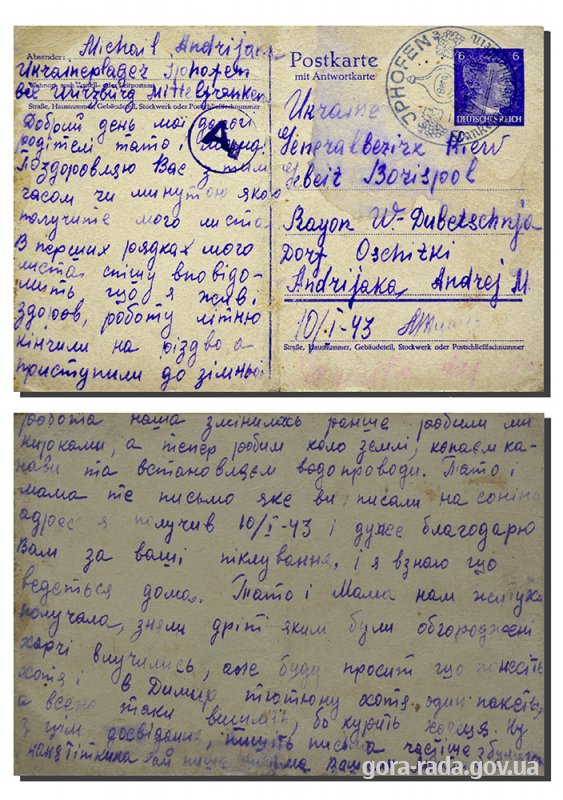 Absender: Michail Andrijaka
Ukrainerlager Iphofen
bei Würzburg Mittelfranken
Wohnort, auch Zustell- oder Leitpostamt
Straße, Hausnummer, Gebäudeteil, Stockwerk oder Postschließfachnummer
Добрий день мої дорогі
родітелі тато і
Поздоровляю Вас з тим
часом чи минутою якою
получите мого листа.
В перших рядках мого
листа спішу вповідо-
мить що я жив і
здоров, роботу літню
кінчили на різдво, а
приступили до зімньої
A
Postkarte
mit Antwortkarte
IPHOFEN
6 6
DEUTSCHES REICH
Ukraine
Generalbezirk Kiew
Gebeit Borispol
Rayon W-Dubetschnja
Dorf Oschitki
Andrijaka, Andrej M.
10/I-43
Straße, Hausnummer, Gebäudeteil, Stockwerk oder Postschließfachnummer
робота наша змінилась раніше робили ми
кирками, а тепер робим коло землі, копаєм ка-
нави та встановляєм водопроводи. Тато і
мама те письмо яке ви писали на
адрес я получив 10/I-43 і дуже благодарю
Вам за ваші піклування, і я взнаю що
ведеться дома. Тато і Мама нам
получала, зняли дріт яким були обгороджені
харчі влучились, аже буду просит що
хотя і в Димир тютюну хотя один пакєть,
а все таки вишліть, бо курить хочця. Ну
з цим досвідання, пишіть письма частіше
gora-rada.gov.ua